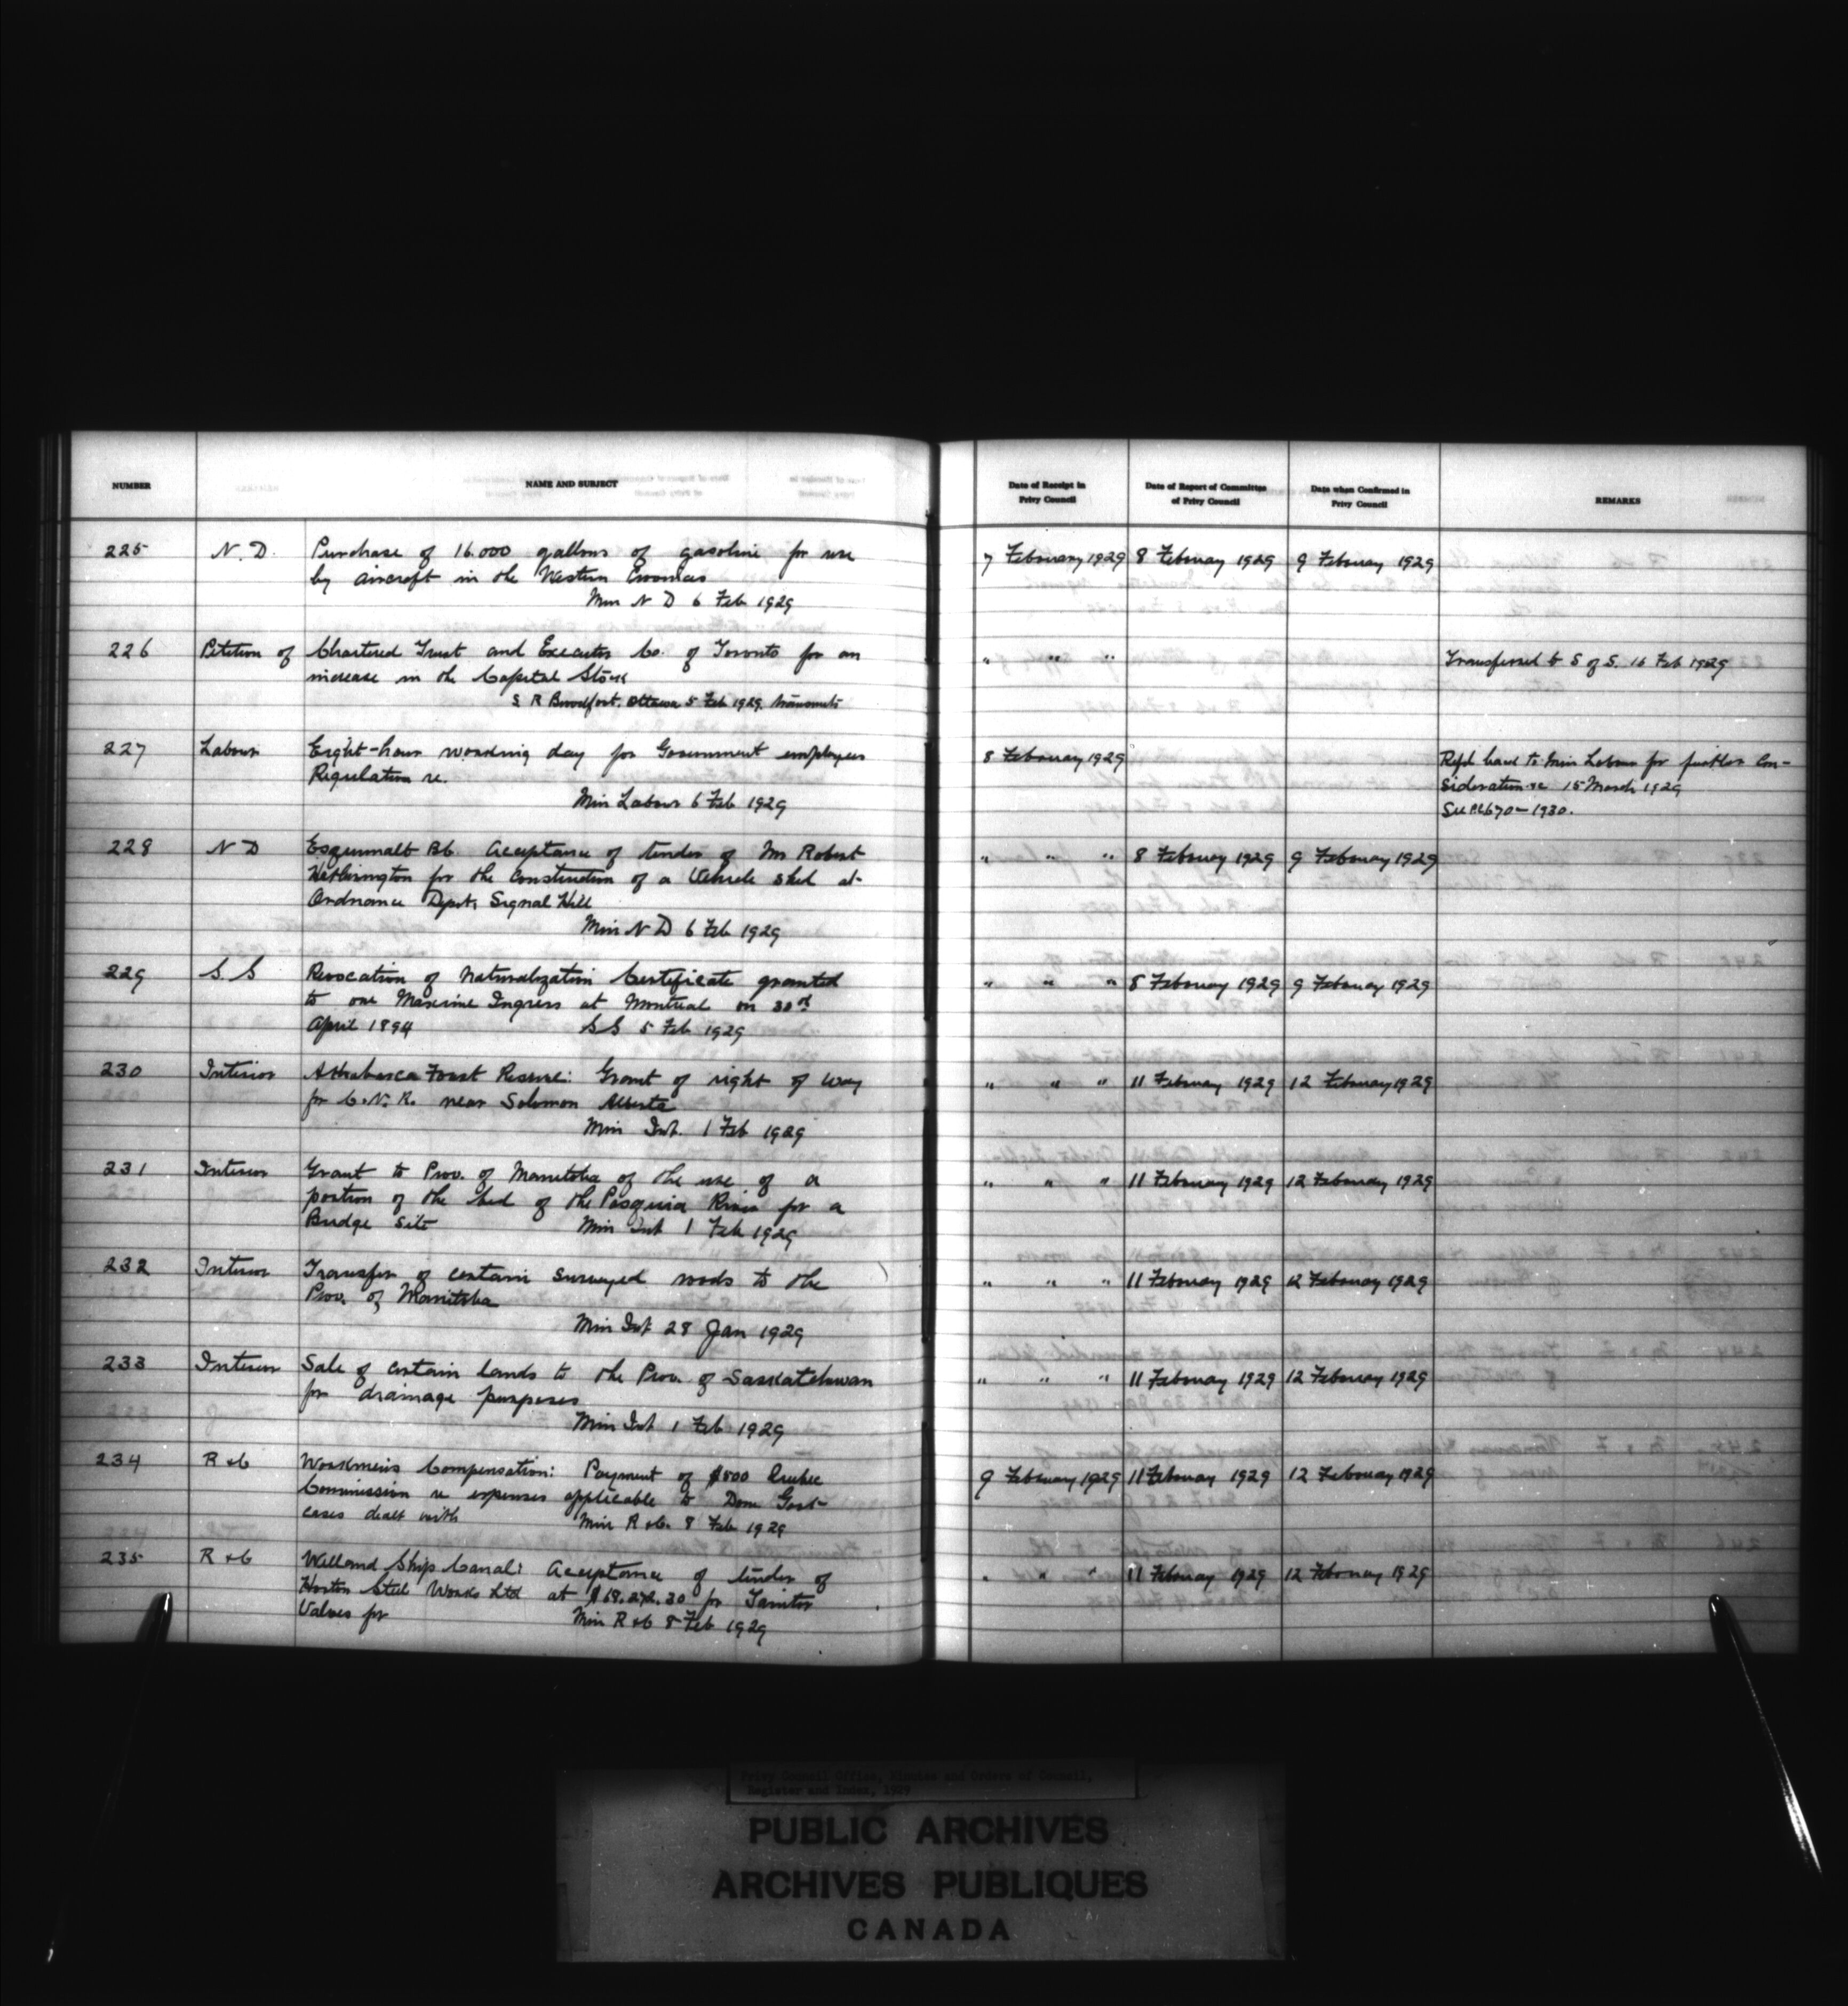 NUMBER NAME AND SUBJECT Date of Receipt in Privy Council Date of Report of Committee of Privy Council Date when Confirmed in Privy Council REMARKS
225 N. D. Purchase of 16.000 gallons of gasoline for use 7 February 1929 8 February 1929 9 February 1929
by aircraft in the Western Provinces
Min N D 6 Feb 1929
226 Petition of Chartered Trust and Executor Co. of Toronto for an " " " Transferred to S of S. 16 Feb 1929
increase in the Capital Stock
S R Broadfoot, Ottawa 5 Feb 1929. transmits
227 Labour Eight-hour working day for Government employees 8 February 1929 Refd back to Min Labour for further Con-
Regulation re. sideration re 15 March 1929
Min Labour 6 Feb 1929 See PC 670 - 1930.
228 N D Esquimalt BC. Acceptance of tender of Mr Robert " " " 8 February 1929 9 February 1929
Hetherington for the Construction of a Vehicle shed at
Ordnance Depot, Signal Hill
Min N D 6 Feb 1929
229 S. S Revocation of Naturalization Certificate granted " " " 8 February 1929 9 February 1929
to one Maxime Ingress at Montreal on 30th
April 1894 S S 5 Feb 1929
230 Interior Athabasca Forest Reserve: Grant of right of way " " " 11 February 1929 12 February 1929
for C. N. R. near Solomon Alberta
Min Int. 1 Feb 1929
231 Interior Grant to Prov. of Manitoba of the use of a " " " 11 February 1929 12 February 1929
portion of the bed of the Pasquia River for a
Bridge Site Min Int 1 Feb 1929
232 Interior Transfer of certain surveyed roads to the " " " 11 February 1929 12 February 1929
Prov. of Manitoba
Min Int 28 Jan 1929
233 Interior Sale of certain lands to the Prov. of Saskatchewan " " " 11 February 1929 12 February 1929
for drainage purposes
Min Int 1 Feb 1929
234 R & C Workmen's Compensation: Payment of $800 Quebec 9 February 1929 11 February 1929 12 February 1929
Commission re expenses applicable to Dom Govt
cases dealt with Min R & C. 8 Feb 1929
235 R & C Welland Ship Canal: Acceptance of tender of " " " 11 February 1929 12 February 1929
Horton Steel Works Ltd at $18.272.30 for Taintor
Valves for Min R & C 8 Feb 1929
Privy Council Office, Minutes and Orders of Council,
Register and Index, 1929
PUBLIC ARCHIVES
ARCHIVES PUBLIQUES
CANADA